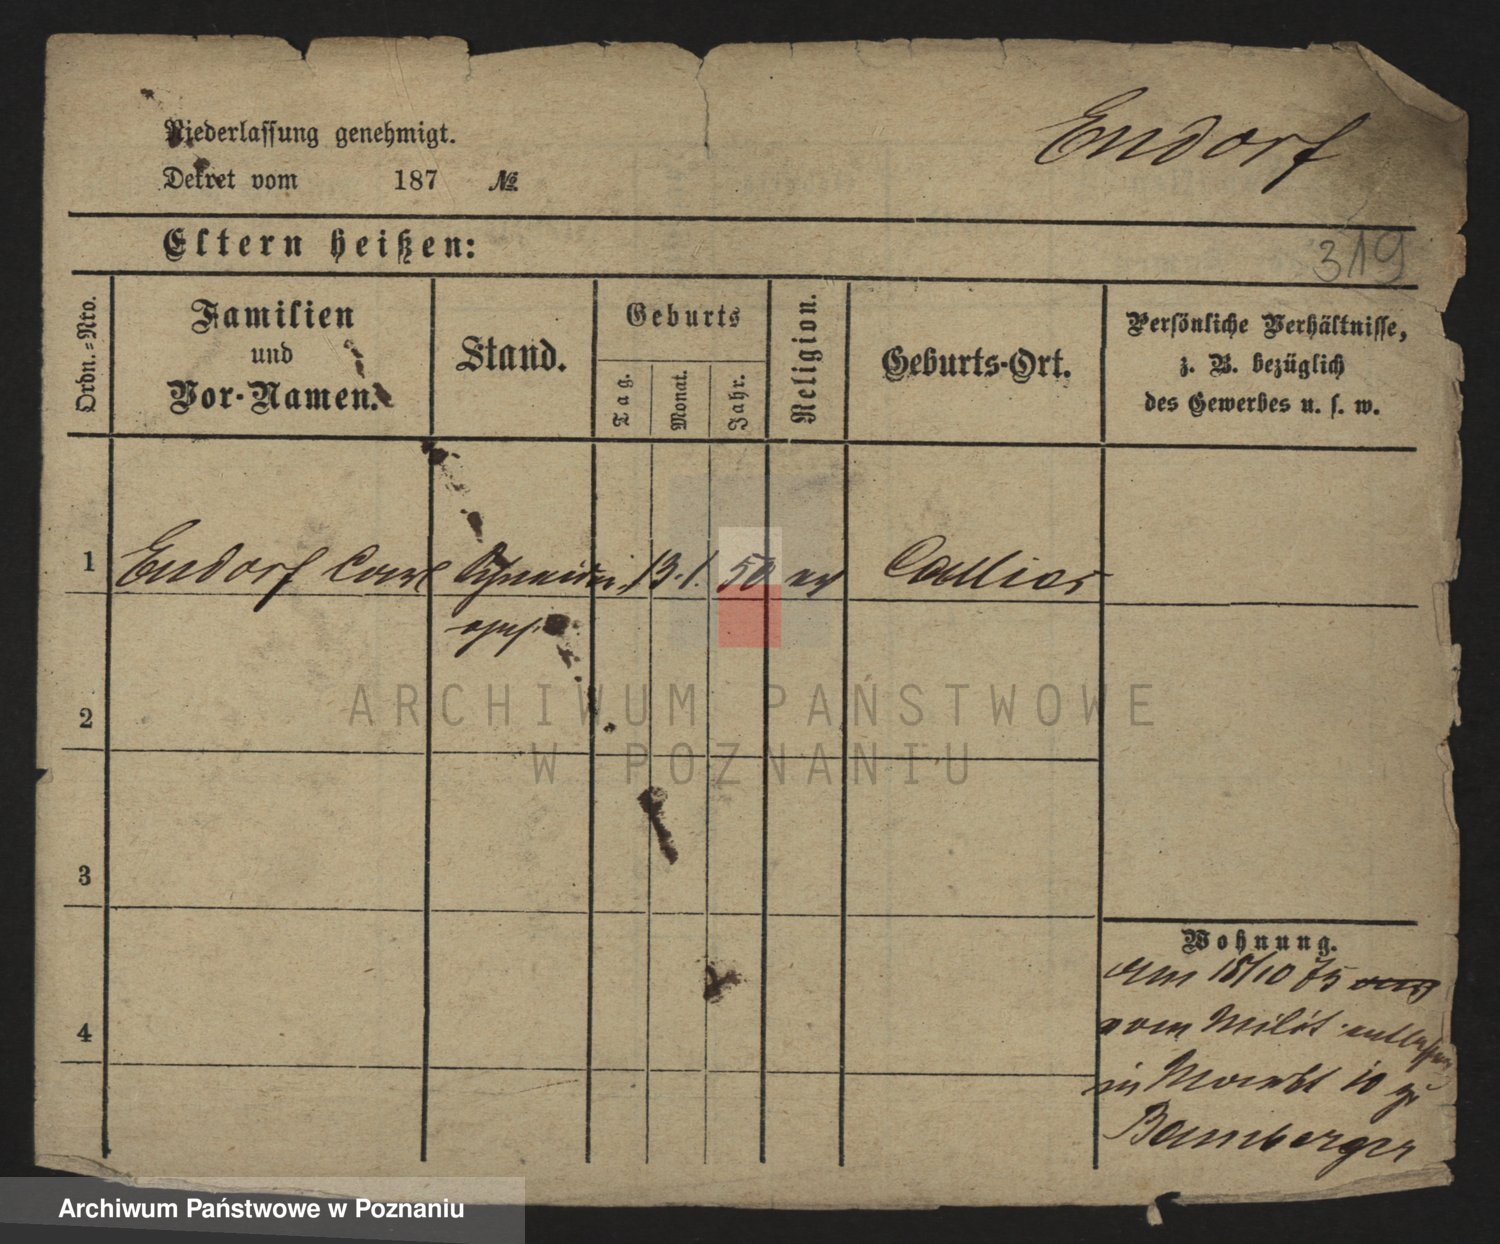 Endorf
Niederlassung genehmigt.
Dekret vom 187 №
319
Eltern heißen:
Ordn.-Nro.
Familien
und
Vor-Namen.
Stand.
Geburts
Tag.
Monat.
Jahr.
Religion.
Geburts-Ort.
Persönliche Verhältnisse,
z. B. bezüglich
des Gewerbes u. s. w.
1 Endorf Carl Schneider 13. 1. 50 ev
2
3
4
Wohnung.
Am 15/10 75
vom Milit entlassen
in Markt 10 zu
Bamberger
ARCHIWUM PAŃSTWOWE
W POZNANIU
Archiwum Państwowe w Poznaniu